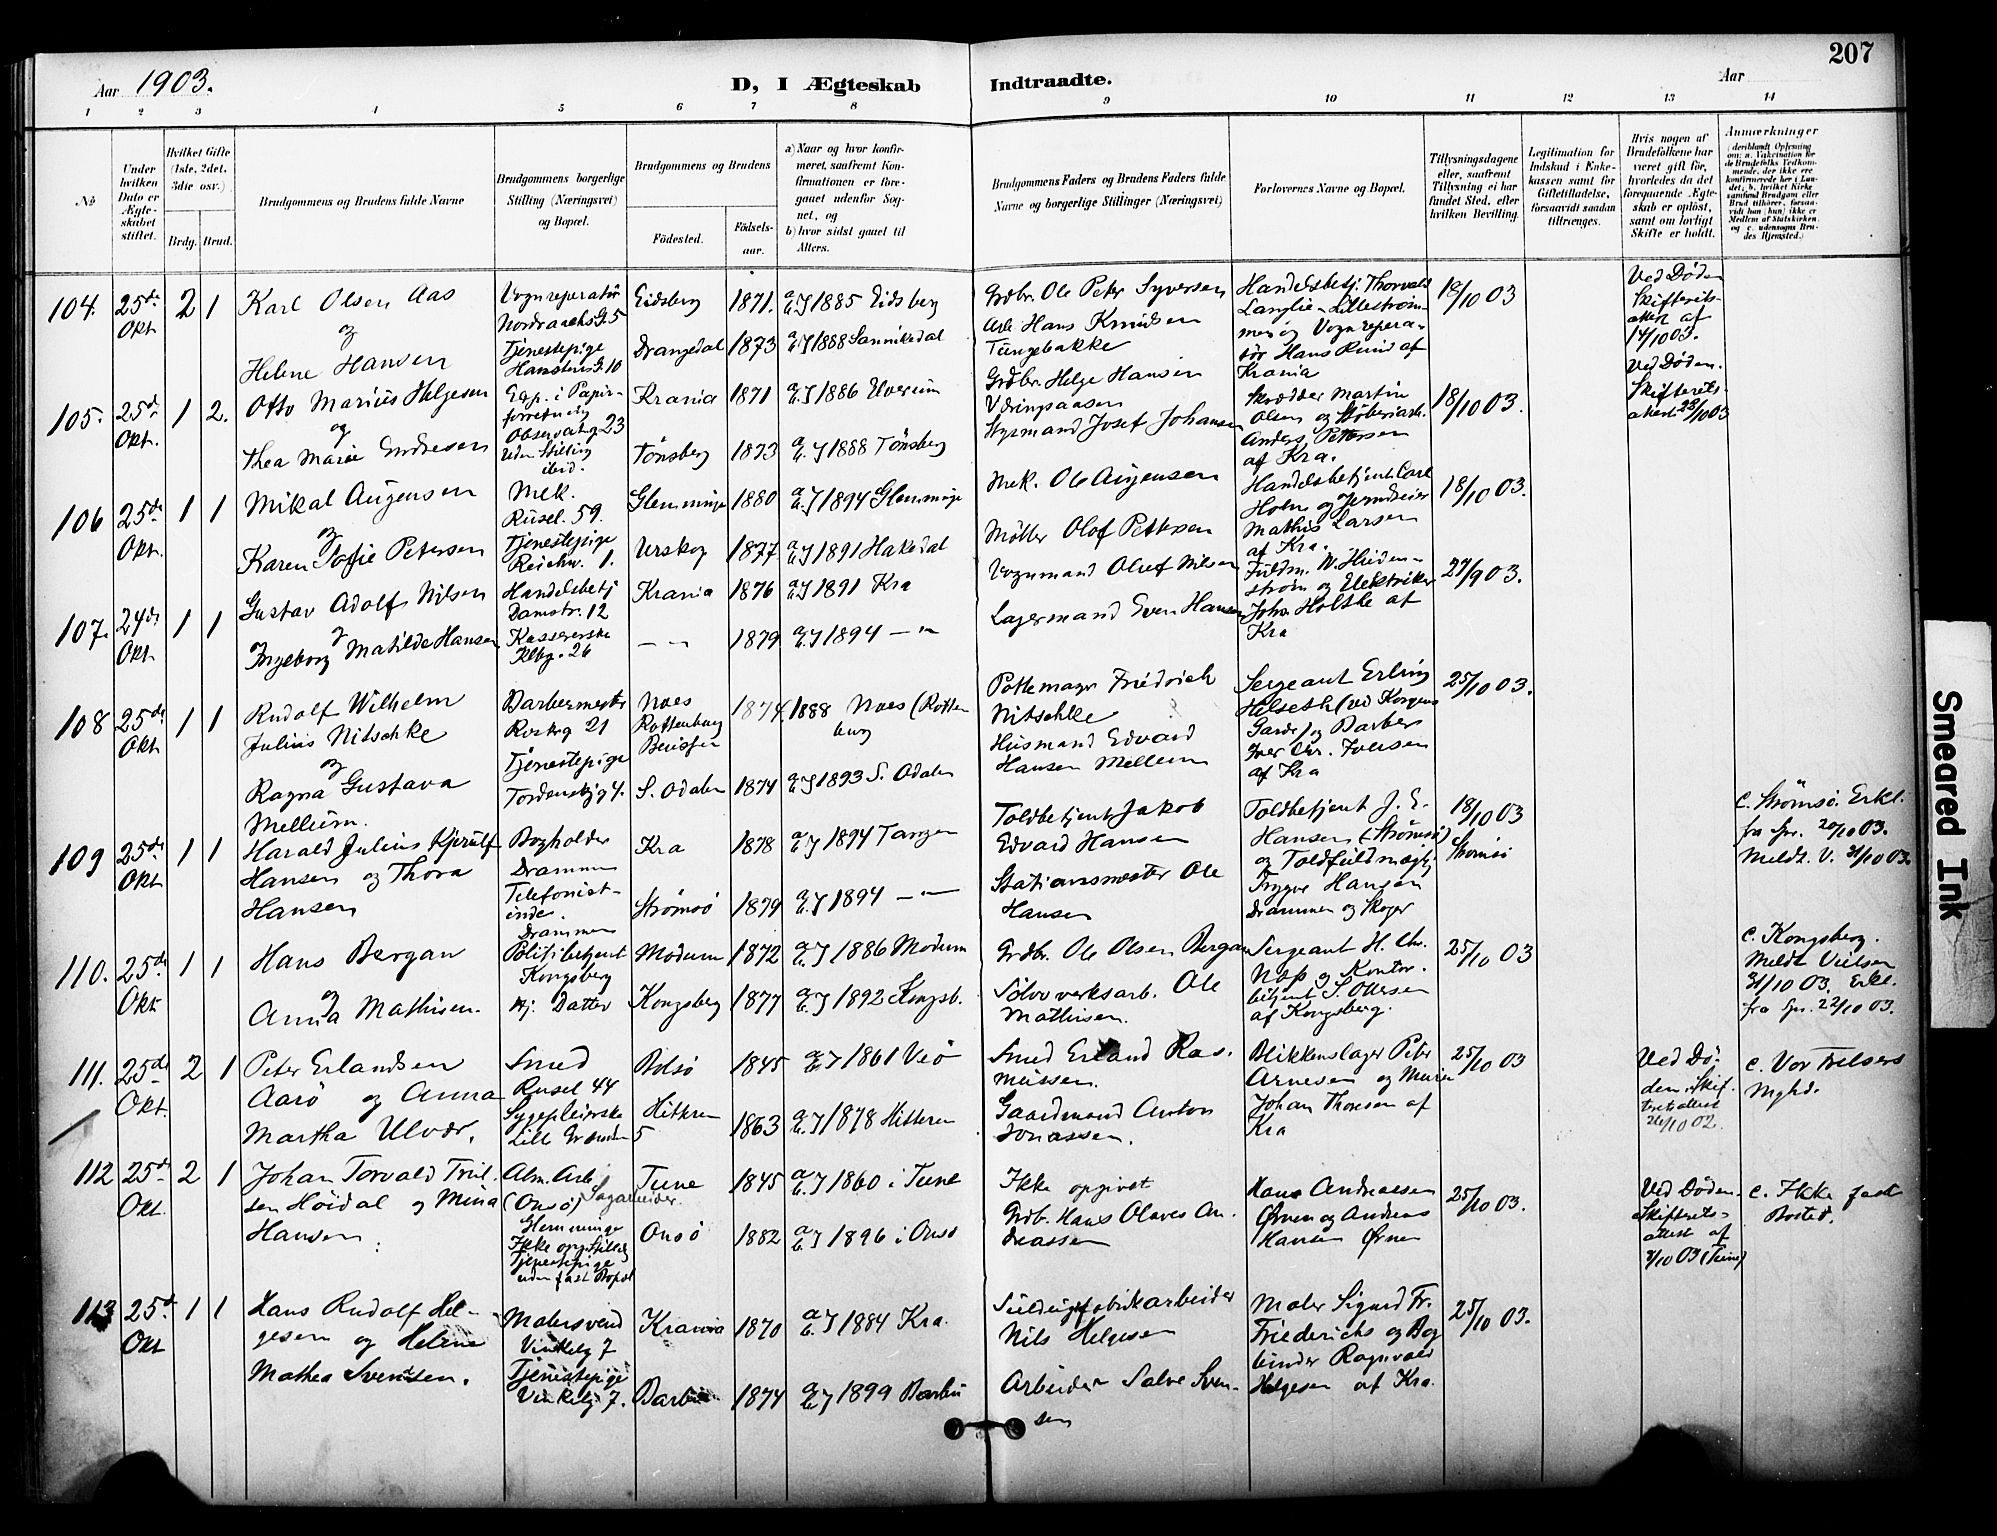 207
Aar 1903.
D, I Ægteskab Indtraadte.
Aar
1 2 3 4 5 6 7 8 9 10 11 12 13 14
No
Under hvilken Dato er Ægteskabet stiftet.
Hvilket Gifte (1ste, 2det, 3die osv.)
Brdg. Brud.
Brudgommens og Brudens fulde Navne
Brudgommens borgerlige Stilling (Næringsvei) og Bopæl.
Brudgommens og Brudens
Fødested. Fødsels-aar.
a) Naar og hvor konfirmeret, saafremt Konfirmationen er foregaaet udenfor Sognet, og
b) hvor sidst gaaet til Alters.
Brudgommens Faders og Brudens Faders fulde Navne og borgerlige Stillinger (Næringsvei)
Forlovernes Navne og Bopæl.
Tillysningsdagene eller, saafremt Tillysning ei har fundet Sted, efter hvilken Bevilling.
Legitimation for Indskud i Enkekassen samt for Giftetilladelse, forsaavidt saadan tiltrænges.
Hvis nogen af Brudefolkene har været gift før, hvorledes da det foregaaende Ægteskab er opløst, samt om lovligt Skifte er holdt.
Anmærkninger
104. 25de Okt 2 1
Karl Olsen Aas
og
Helene Hansen
Vognreperatør
Nordraachs G. 5
Tjenestepige
Hanstens G. 10
Eidsberg 1871. 1885 Eidsberg
Drangedal 1873 1888 Sannikedal
Grdbr. Ole Peter Syversen
Arb Hans Knudsen
Tungebakke
Handelsbetj. Thorvald
Langlie - Lillestrøm-
men og Vognrepera-
tør Hans Ruud af
Krania
18/10 03
Ved Døden
Skifterets-
attest af
14/10 03.
105. 25de Okt. 1 2.
Otto Marius Helgesen
og
Thea Marie Endresen
Exp. i Papir-
forretning
Observatg 23
Uden Stilling
ibid.
Krania 1871 1886 Elverum
Tønsberg 1873 1888 Tønsberg
Grdbr. Helge Hansen
Styrmand Josef Johansen
Skrædder Martin
Olsen og Støberiarb.
Anders Pettersen
af Kra.
18/10 03.
Ved Døden.
Skifterets-
attest 23/10 03
106 25de Okt. 1 1
Mikal Augensen
og
Karen Sofie Petersen
Mek.
Rusel. 59.
Tjenestepige
Reichw. 1.
Glemminge 1880 1894 Glemminge
Urskog 1877 1891 Hakedal
Mek. Ole Augensen
Møller Olof Pettersen
Handelsbetjent Carl
Holm og
Mathis Larsen
af Kra.
18/10 03.
107. 24de Okt 1 1
Gustav Adolf Nilsen
og
Ingeborg Matilde Hansen
Handelsbetj
Damstr. 12
Kassererske
Klbg. 26
Krania 1876 1891 Kra
— " — 1879 1894 — " —
Vognmand Oluf Nilsen
Lagermand Even Hansen
Fuldm. W. Hieden-
strøm og Elektriker
Johs Holtske af
Kra
27/9 03.
108 25de Okt 1 1
Rudolf Wilhelm
Julius Nitschke
og
Ragna Gustava
Mellum.
Barbermester
Rostg 21
Tjenestepige
Tordenskjg 4.
Noes
Rottenburg
1874 1888 Noes (Rotten
burg
S. Odalen 1874 1893 S. Odalen
Pottemager Friedrich
Nitschke
Husmand Edvard
Hansen Mellum
Sergeant Erling
Helseth (ved Kongens
Garde) og Barber
Iver Chr. Iversen
af Kra
25/10 03.
109 25de Okt 1 1
Harald Julius Kjerulf
Hansen og Thora
Hansen
Bogholder
Drammen
Telefonist-
inde.
Drammen
Kra 1878 1894 Tangen
Strømsø 1879 1894 — " —
Toldbetjent Jakob
Edvard Hansen
Stationsmester Ole
Hansen
Toldbetjent J. E.
Hansen (Strømsø)
og Toldfuldmægtig
Trygve Hansen
Drammen og Skoger
18/10 03
Strømsø
C. Strømsø. Erkl.
fra Spr. 20/10 03.
Meldt V. 31/10 03.
110. 25de Okt 1 1
Hans Bergan
og
Anna Mathisen.
Politibetjent
Kongsberg
Hj. Datter
Modum 1872 1886 Modum
Kongsberg 1877 1892 Kongsb.
Grdbr. Ole Olsen Bergan
Sølvverksarb. Ole
Mathisen.
Sergeant H. Chr.
Nap og Kontor-
betjent S. Ottersen
af Kongsberg.
25/10 03
C. Kongsberg.
Meldt Vielsen
31/10 03. Erkl.
fra Spr. 22/10 03.
111. 25de Okt. 2 1
Peter Erlandsen
Aarø og Anna
Martha Ulvær.
Smed
Rusel 44
Sygepleierske
Bolsø 1845 1861 Veø
Hitteren 1863 1878 Hitteren
Smed Erland Ras-
mussen.
Gaardmand Anton
Jonassen.
Blikkenslager Peter
Arnesen og Murer
Johan Thoresen af
Kra
25/10 03
Ved Dø-
den. Skif-
teretsattest
26/10 02.
C. Vor Frelsers
Mghd.
112 25de Okt. 2 1
Johan Torvald Truls
sen Høidal og Mina
Hansen
Alm. Arb.
(Onsø) Sagarbeider.
Glemminge
Ikke opg Stilling
Tjenestepige
uden fast Bopæl
Tune 1845 1860 i Tune
Onsø 1882 1896 i Onsø
Ikke opgivet
Grdb. Hans Olaves An-
dreassen
Hans Andreassen
Ørnen og Andreas
Hansen Ørnen
25/10 03.
Ved Døden.
Skifterets-
attest af
2/10 03 (Tune)
C. Ikke fast
Bosted.
113 25de Okt 1 1
Hans Rudolf Hel-
gesen og Helene
Mathea Svendsen.
Malersvend
Vinkelg 7
Tjenestepige
Vinkelg 7.
Krania 1870 1884 Kra.
Barbu 1874 1899 Barbu
Nils Helgesen
Arbeider Salve Sven-
sen
Maler Sigurd Fr.
Friederichs og Bog
binder Ragnvald
Helgesen af Kra.
25/10 03.
Smeared Ink